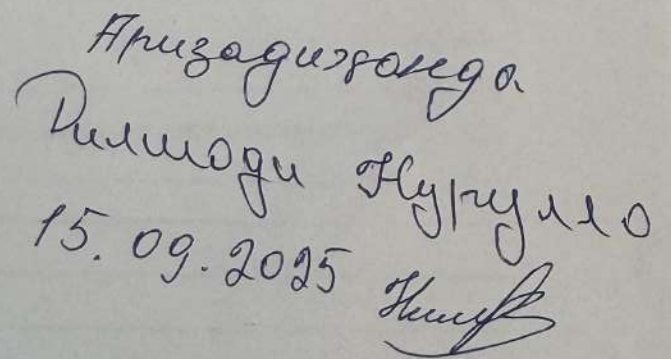 Аризадиҳанда
Дилшоди Нурулло
15.09.2025